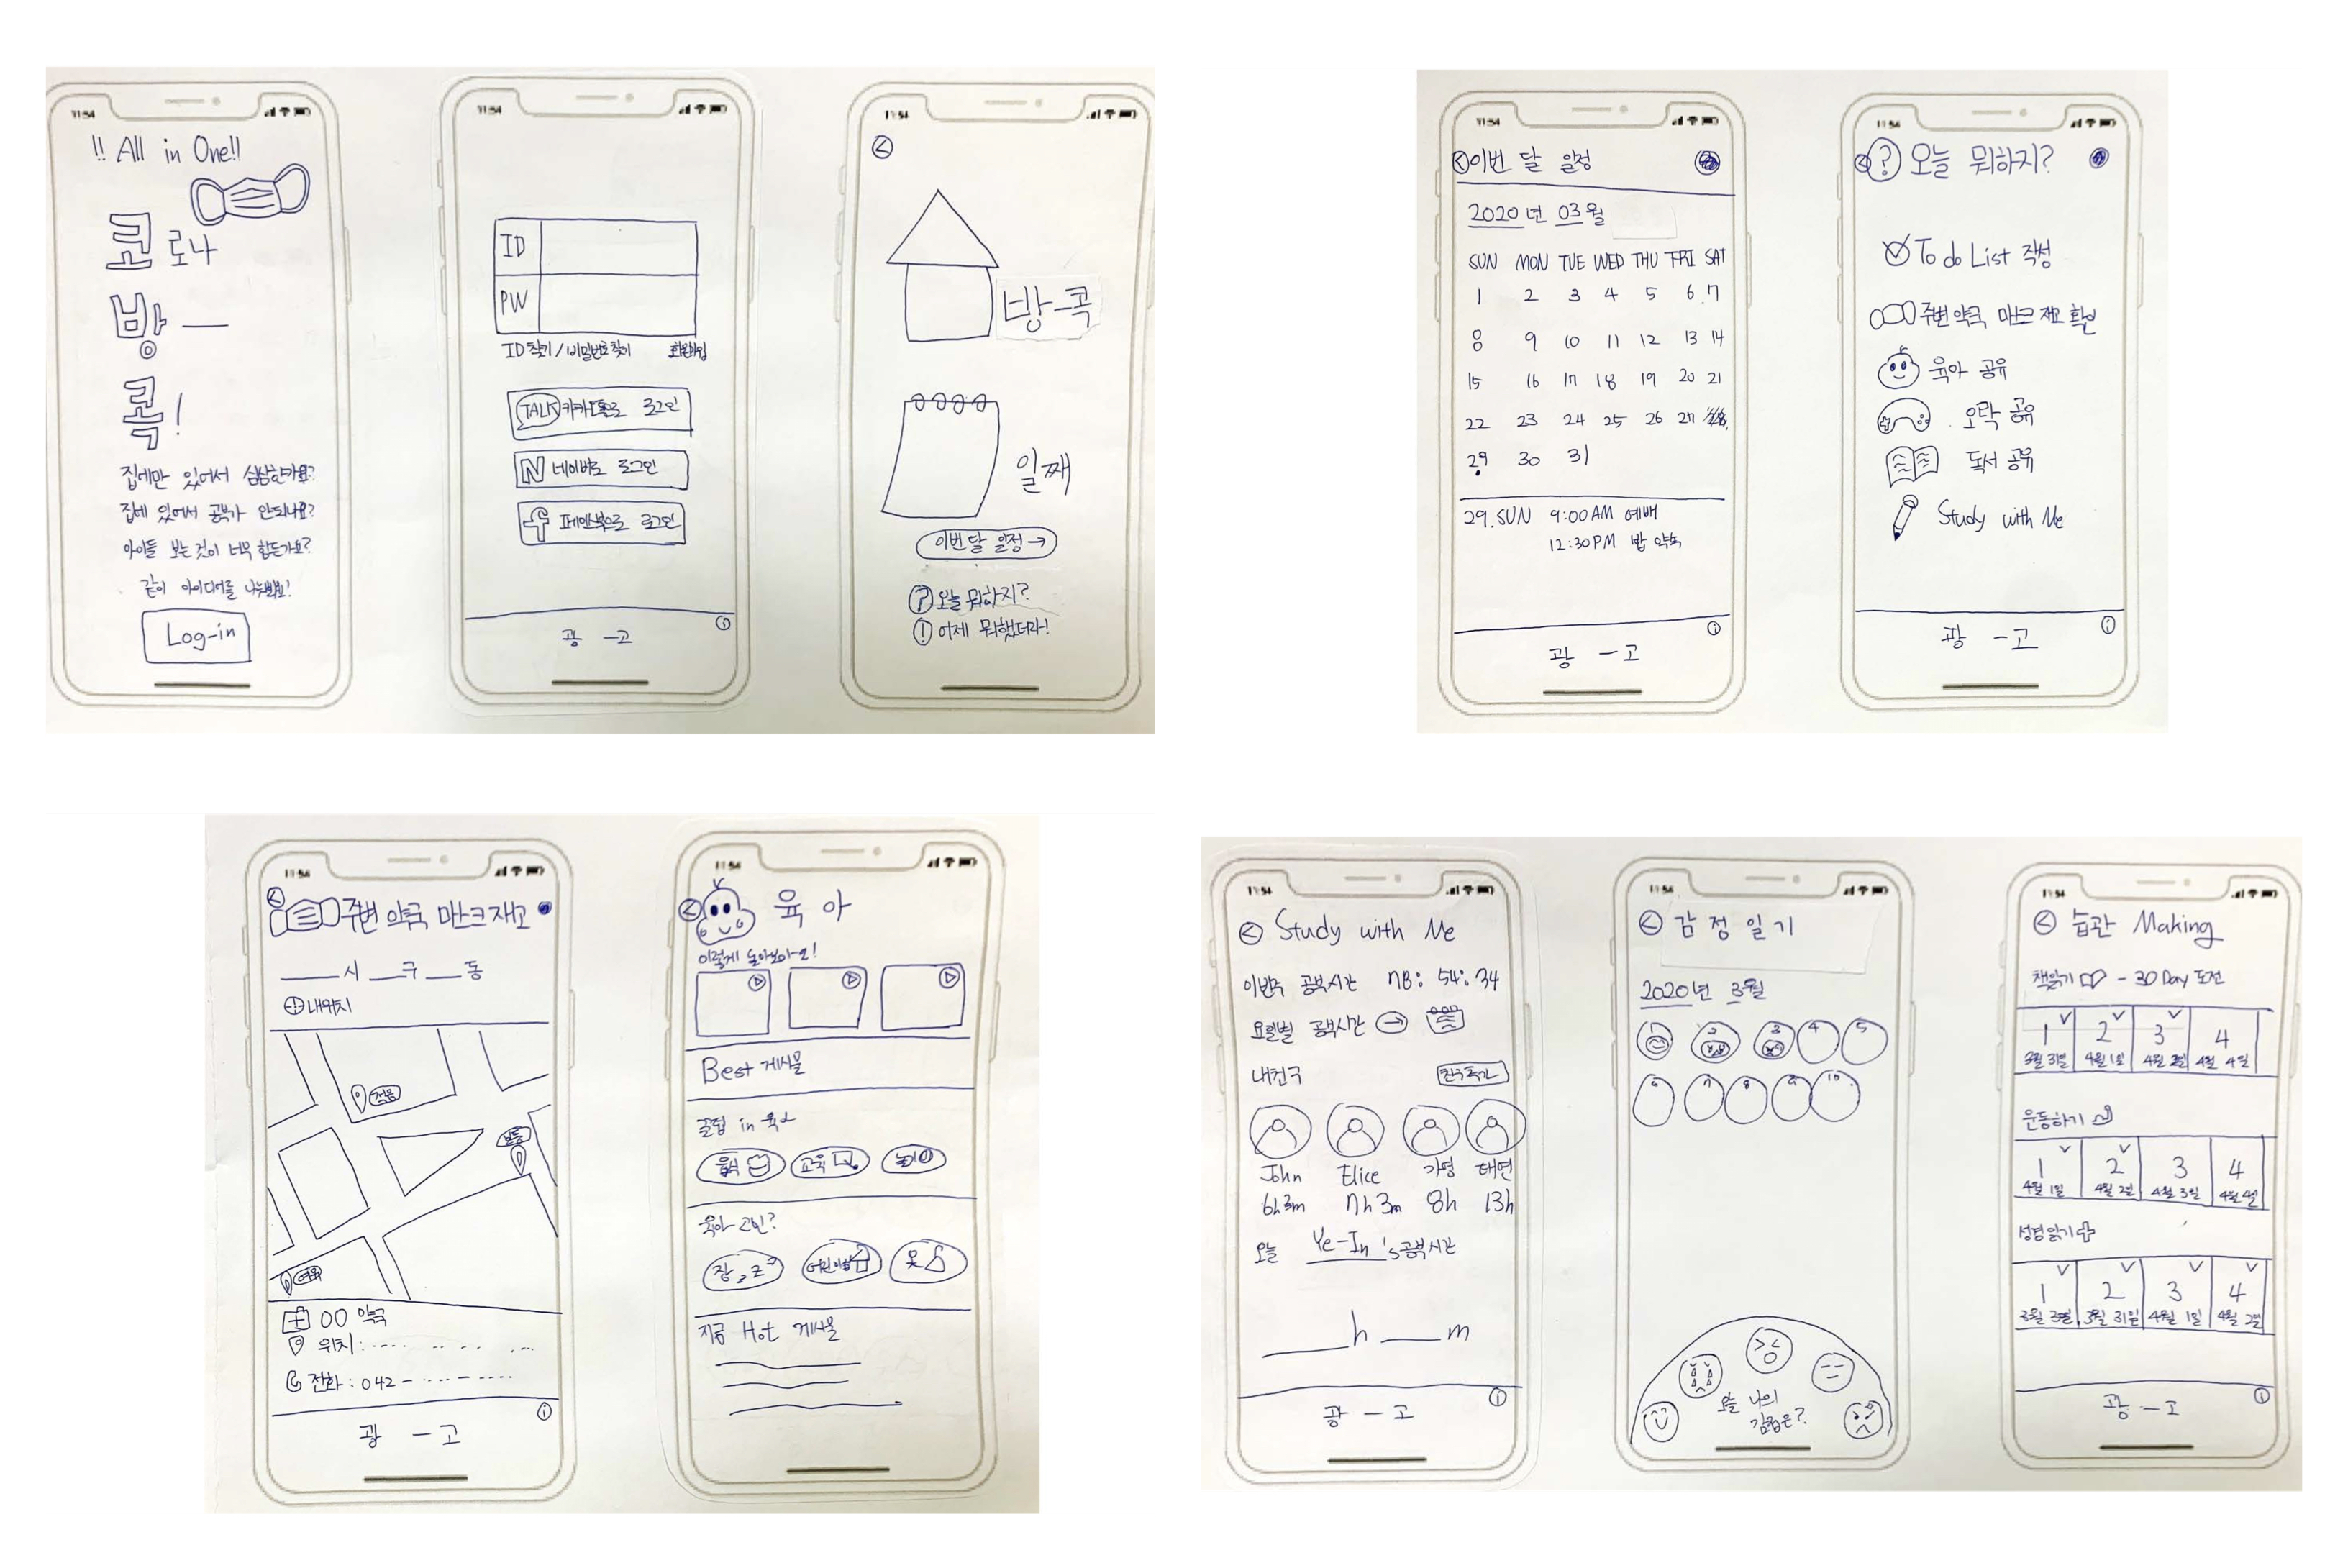 11:54
!! All in One!!
코로나
방 —
콕!
집에만 있어서 심심한가요?
집에 있어서 공부가 안되나요?
아이들 보는것이 너무 힘든가요?
같이 아이디어를 나눠봐요!
Log-in
11:54
ID
PW
ID찾기/비밀번호찾기 회원가입
TALK 카카오톡으로 로그인
N 네이버로 로그인
f 페이스북으로 로그인
광 — 고
11:54
방-콕
일째
이번달 일정→
? 오늘 뭐하지?
! 어제 뭐했더라!
11:54
이번 달 일정
2020년 03월
SUN MON TUE WED THU FRI SAT
1 2 3 4 5 6 7
8 9 10 11 12 13 14
15 16 17 18 19 20 21
22 23 24 25 26 27
29 30 31
29.SUN 9:00AM 예배
12:30PM 밥 약속
광 — 고
11:54
? 오늘 뭐하지?
To do List 작성
주변약국 마스크 재고 확인
육아 공유
오락 공유
독서 공유
Study with Me
광 — 고
11:54
주변 약국 마스크재고
시 구 동
내위치
적음
보통
여유
OO 약국
위치:
전화: 042-
광 — 고
11:54
육아
이렇게 놀아보아요!
Best 게시물
꿀팁 in 육아
음식 교육 놀이
육아 고민?
잠 zz 어린이집 옷
지금 Hot 게시물
11:54
Study with Me
이번주 공부시간 78: 54: 34
요일별 공부시간 →
내친구 친구추가
John Elice 가영 태연
6h3m 7h3m 8h 13h
오늘 Ye-In 's공부시간
h m
광 — 고
11:54
감정일기
2020년 3월
1 2 3 4 5
6 7 8 9 10
오늘 나의
감정은?
11:54
습관 Making
책읽기 - 30Day 도전
1 2 3 4
3월 31일 4월 1일 4월 2일 4월 4일
운동하기
1 2 3 4
4월 1일 4월 2일 4월 3일 4월 4일
성경읽기
1 2 3 4
3월 30일 3월 31일 4월 1일 4월 2일
광 — 고